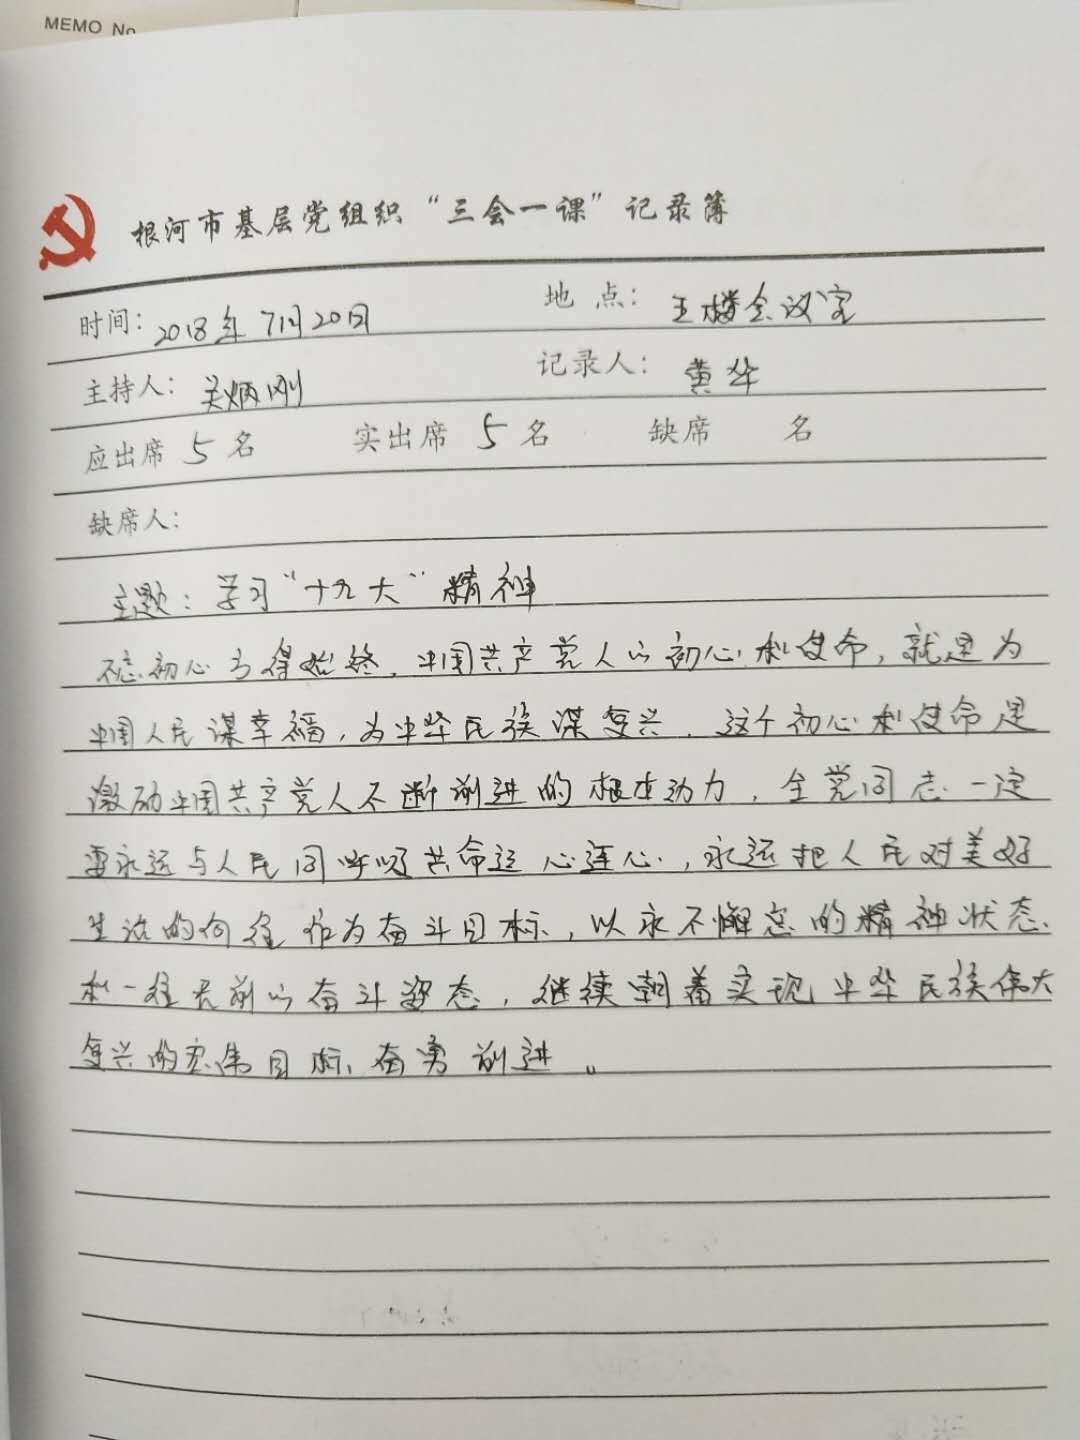 MEMO No
根河市基层党组织“三会一课”记录簿
时间：2018年7月20日 地点：五楼会议室
主持人：吴炳刚 记录人：黄华
应出席 5 名 实出席 5 名 缺席 名
缺席人：
主题：学习“十九大”精神
不忘初心方得始终，中国共产党人的初心和使命，就是为
中国人民谋幸福，为中华民族谋复兴．这个初心和使命是
激励中国共产党人不断前进的根本动力．全党同志一定
要永远与人民同呼吸共命运心连心，永远把人民对美好
生活的向往作为奋斗目标，以永不懈怠的精神状态
和一往无前的奋斗姿态，继续朝着实现中华民族伟大
复兴的宏伟目标奋勇前进。